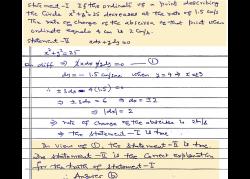 Statement-I If the ordinate of a point describing
the circle x²+y²=25 decreases at the rate of 1.5 cm/s
the rate of change of the abscissa of that point when
ordinate equals 4 cm is 2 cm/s.
Statement-II xdx+ydy=0
x²+y²=25
On diff ⇒ xdx+ydy=0 ①
dy=-1.5 cm/sec when y=4 ⇒ x=±3
∴ ±3dx+4(-1.5)=0
⇒ ±3dx=6 ⇒ dx=±2
⇒ |dx|=2
⇒ rate of change of the abscissa is 2cm/s
⇒ the statement-I is true
In view of ①, the statement-II is true
the statement-II is the correct explanation
for the truth of statement-I
∴ Answer